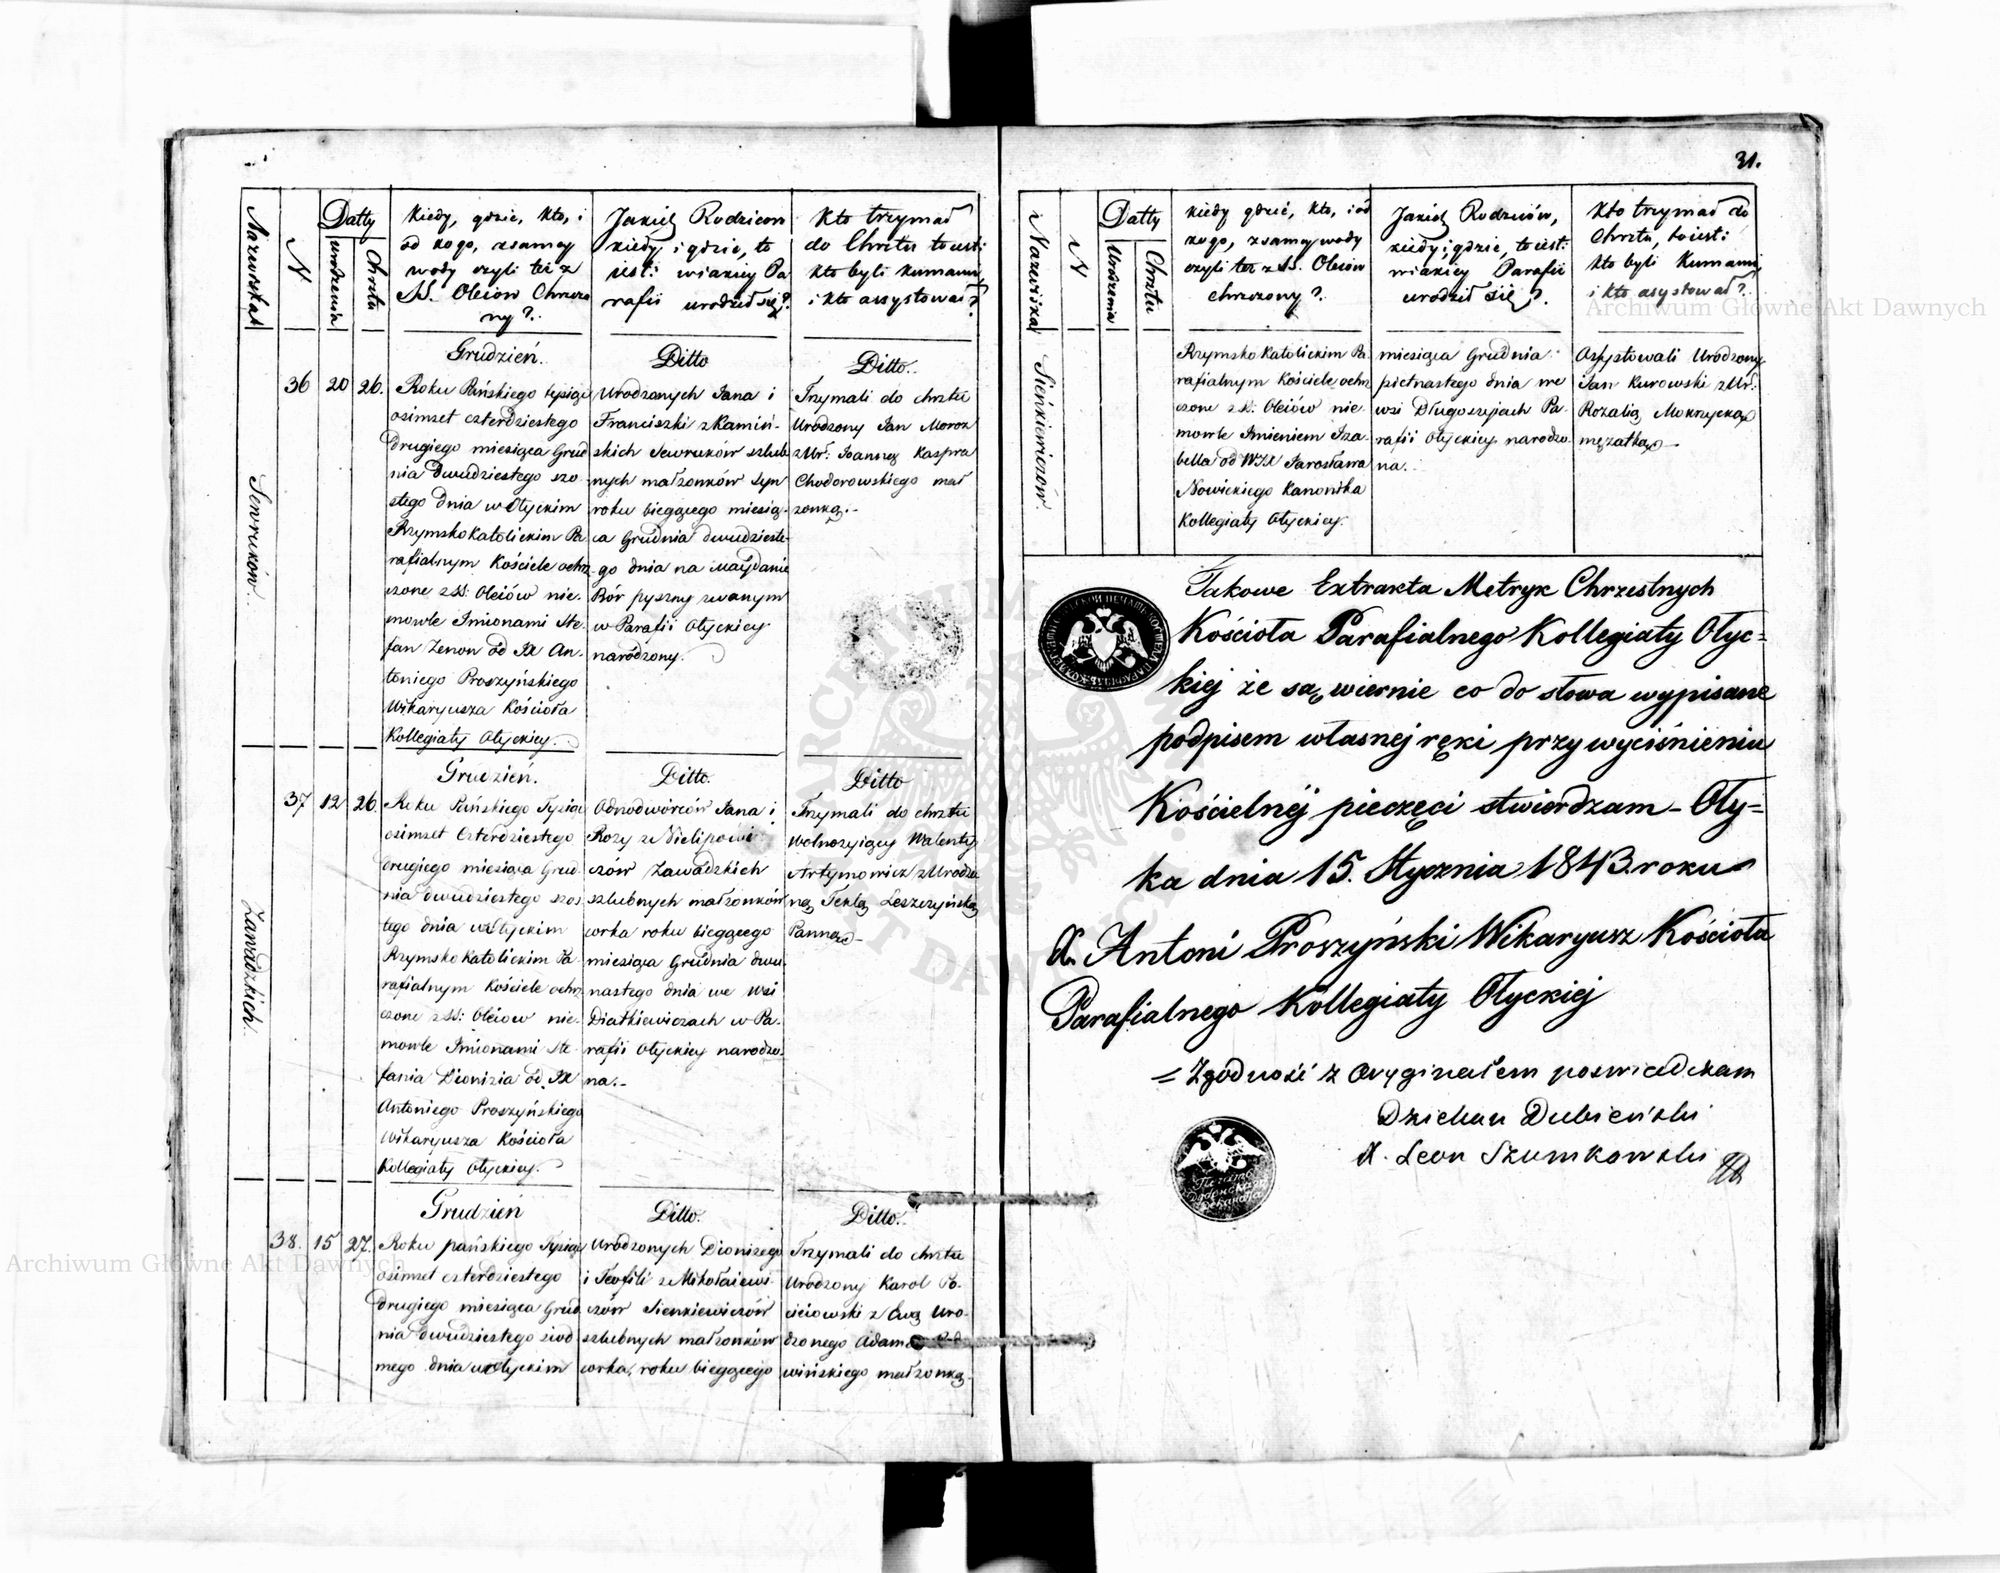 31.
Nazwiska
N
Datty
urodzenia
Chrztu
Kiedy, gdzie, kto, i
od kogo, z samey
wody czyli też z
SS. Oleiow Chrzczo
ny?.
Jakich Rodzicow
kiedy i gdzie, to
iest: w iakiey Pa
rafii urodził się?
Kto trzymał
do Chrztu to iest:
kto byli kumami,
i kto assystował?
Sewruków.
36
20
26.
Grudzień.
Roku Pańskiego tysiąc
osimset czterdziestego
drugiego miesiąca Grud
nia dwudziestego szo
stego dnia w Ołyckim
Rzymsko Katolickim Pa
rafialnym Kościele ochrz
czone z SS: Oleiów nie-
mowle Imionami Ste-
fan Zenon od JX An-
toniego Proszyńskiego
Wikaryusza Kościoła
Kollegiaty Ołyckiey.
Ditto
Urodzonych Jana i
Franciszki z Kamiń-
skich Sewruków szlub
nych małżonków syn
roku bieggcego miesią-
ca Grudnia dwudzieste-
go dnia na Maydanie
Bór pyszny zwanym
w Parafii Ołyckiey
narodzony.
Ditto.
Trzymali do chrztu
Urodzony Jan Moroz
z Ur: Joanną Kaspra
Chodorowskiego mał
żonką.-
Zawadzkich.
37
12
26
Grudzień.
Roku Pańskiego Tysiąc
osimset Czterdziestego
drugiego miesiąca Grud
nia dwudziestego szos
tego dnia w Ołyckim
Rzymsko Katolickim Pa
rafialnym Kościele ochrz
czone z SS: Oleiow nie-
mowle Imionami Ste
fania Dionizia od JX
Antoniego Proszyńskiego
Wikaryusza Kościoła
Kollegiaty Ołyckiey.
Ditto.
Odnodworców Jana i
Rozy z Nielipowi
czów Zawadzkich
szlubnych małżonków
corka roku bieggcego
miesiąca Grudnia dwu
nastego dnia we wsi
Diatkiewiczach w Pa-
rafii Ołyckiey narodzo-
na.-
Ditto
Trzymali do chrztu
wolnożyiący Walenty
Artymowicz z Urodzo
ną Teklą Leszczyńską
Panną.-
38.
15
27.
Grudzień
Roku pańskiego Tysiąc
osimset czterdziestego
drugiego miesiąca Grud
nia dwudziestego siod
mego dnia w Ołyckim
Ditto.
Urodzonych Dionizego
i Teofili z Mikołaiewi
czów Sienkiewiczów
szlubnych małżonków
corka, roku bieggcego
Ditto.
Trzymali do chrztu
Urodzony Karol Po-
ciciowski z Ewą Uro-
dzonego Adama
wińskiego małżonką.
Nazwiska
N
Datty
Urodzenia
Chrztu
Kiedy gdzie, kto, i od
kogo, z samey wody
czyli też z SS. Oleiow
chrzczony?.
Jakich Rodziców,
kiedy i gdzie, to iest:
w iakiey Parafii
urodził się?.
Kto trzymał do
Chrztu, to iest:
kto byli Kumami
i kto asystował?.
Sieńkiewiczów.
Rzymsko Katolickim Pa-
rafialnym Kościele ochrz
czone z SS: Oleiów nie-
mowle Imieniem Iza-
bella od WJX Jarosława
Nowickiego Kanonika
Kollegiaty Ołyckiey.
miesiąca Grudnia
pietnastego dnia we
wsi Długoszyjach Pa-
rafii Ołyckiey narodzo-
na.-
Assystowali Urodzony
Jan Kurowski z Ur:
Rozalią Mokrzycką
mężatką.-
Takowe Extrakta Metryk Chrzestnych
Kościoła Parafialnego Kollegiaty Ołyc=
kiej że są wiernie co do słowa wypisane
podpisem własnej ręki przy wyciśnieniu
Kościelnéj pieczęci stwierdzam - Oły=
ka dnia 15. Stycznia 1843. roku
X. Antoni Proszyński Wikaryusz Kościoła
Parafialnego Kollegiaty Ołyckiej
= Zgodność z oryginałem poswiadczam
Dziekan Dubieński
X. Leon Szumkowski
Archiwum Główne Akt Dawnych
Archiwum Główne Akt Dawnych